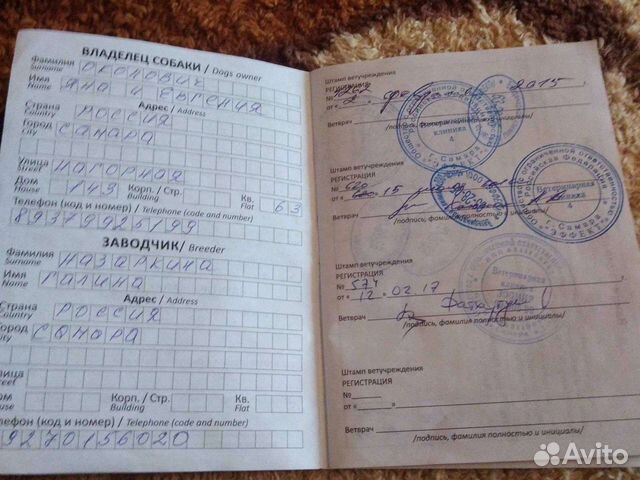 ВЛАДЕЛЕЦ СОБАКИ / Dogs owner
Фамилия ОКОНОВИЧ
Surname
Имя ЯНА И ЕВГЕНИЯ
Name
Адрес / Address
Страна РОССИЯ
Country
Город САМАРА
City
Улица НАГОРНАЯ
Street
Дом 143 Корп. / Стр. Кв. 63
House Building Flat
Телефон (код и номер) / Telephone (code and number)
89379925199
ЗАВОДЧИК/ Breeder
Фамилия НАЗАРКИНА
Surname
Имя ГАЛИНА
Name
Адрес / Address
Страна РОССИЯ
Country
Город САМАРА
City
Улица
Street
Дом Корп. / Стр. Кв.
House Building Flat
Телефон (код и номер) / Telephone (code and number)
9270156020
Штамп ветучреждения
РЕГИСТРАЦИЯ
№
от « 2. февраля 2015
Ветврач
/подпись, фамилия
Ветеринарная
клиника
4
г. Самара
Штамп ветучреждения
РЕГИСТРАЦИЯ
№ 520
от 15
Ветврач
/подпись, фамилия полностью и инициалы/
Ветеринарная
клиника
4
г. Самара
"ЭФФЕКТ"
Штамп ветучреждения
РЕГИСТРАЦИЯ
№ 574
от « 12 . 02. 17
Ветврач
/подпись, фамилия полностью и инициалы/
Ветеринарная
Штамп ветучреждения
РЕГИСТРАЦИЯ
№
от « »
Ветврач
/подпись, фамилия полностью и инициалы/
Avito